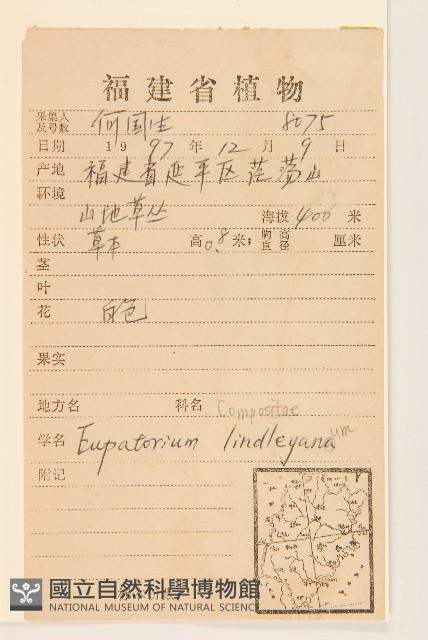 福建省植物
采集人
及号数 何国生 8075
日期 1997年12月9日
产地 福建省延平区茫荡山
环境
山地草丛 海拔 400 米
性状 草本 高 0.8 米; 胸高直径 厘米
茎
叶
花 白色
果实
地方名 科名 Compositae
学名 Eupatorium lindleyana um
附记
國立自然科學博物館
NATIONAL MUSEUM OF NATURAL SCIENCE